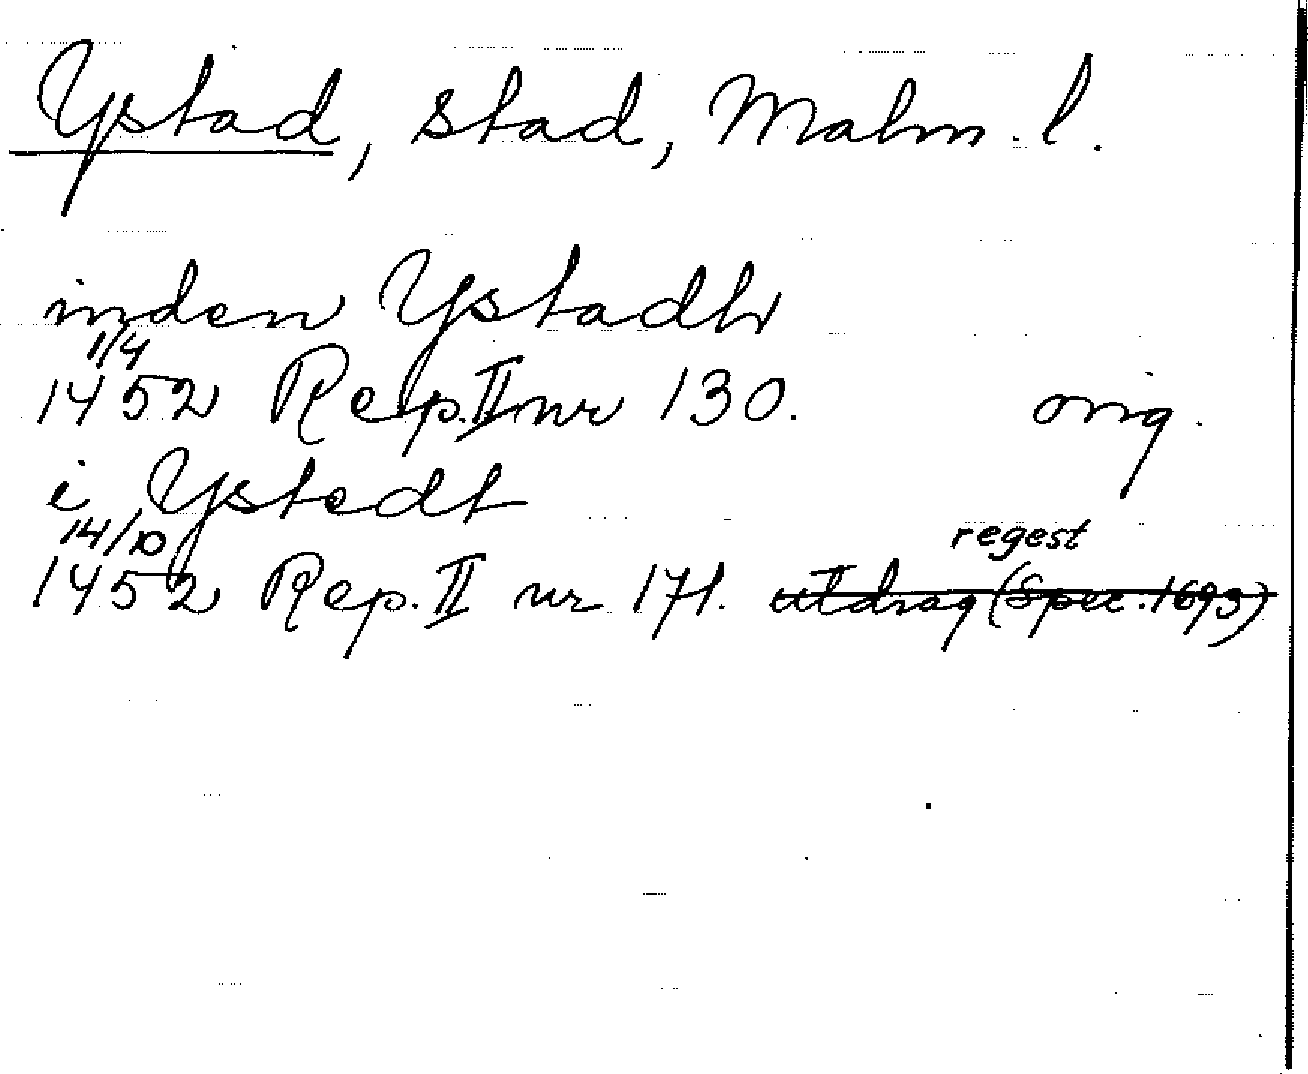 Ystad, stad, Malm. l.
inden Ystadh
1/4
1452 Rep. II nr 130. orig.
i Ystedt
14/10 regest
1452 Rep. II nr 171. utdrag (Spec. 1693)